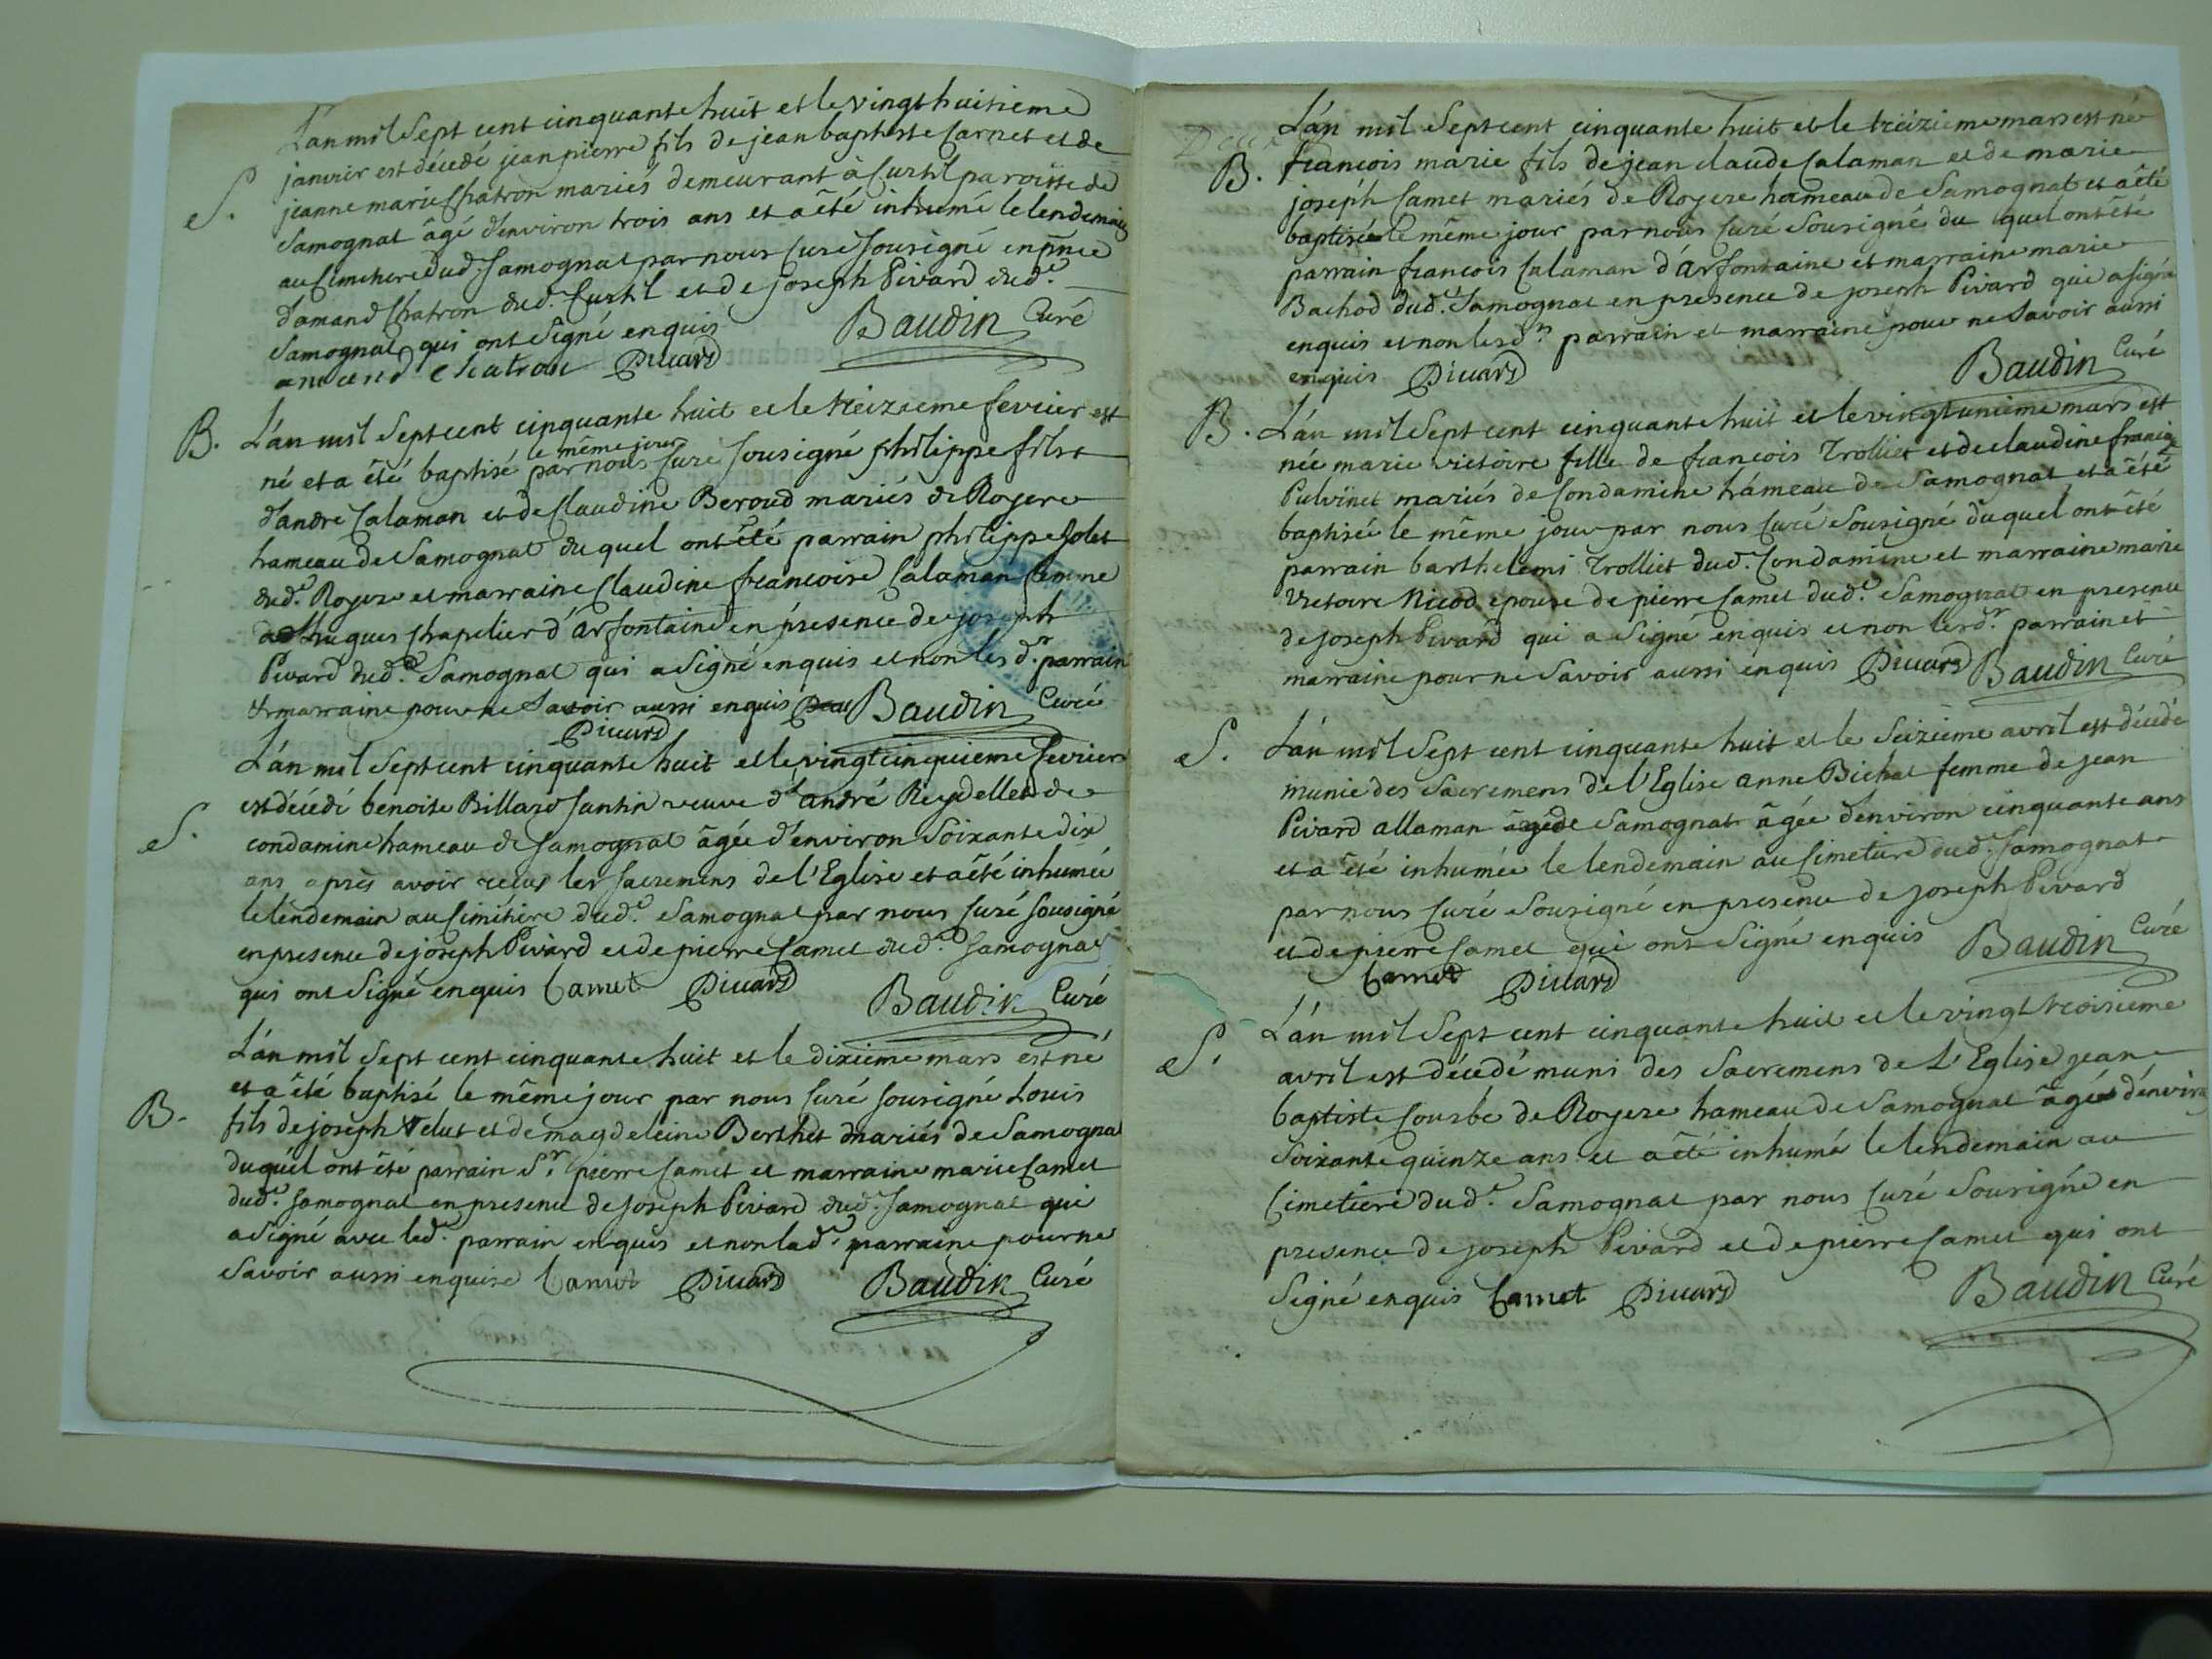 L'an mil Sept cent cinquante huit et le vingt huitieme
janvier est décedé jean pierre fils de jean baptiste Carnet et de
S. jeanne marie Chatron mariés demeurant à Curtil paroisse de
Samognat âgé d'environ trois ans et a êté inhumé le lendemain
au Cimetiere dud. Samognat par nous Curé Sousigné en pnce
d'amand Chatron dud. Curtil et de joseph Pivard dud.e
Samognat qui ont Signé enquis Baudin Curé
amand chatron Pivard
B. L'an mil Sept cent cinquante huit et le treizieme fevrier est
le même jour
né et a êté baptisé par nous Curé Sousigné philippe fils
d'andre Calaman et de Claudine Beroud mariés de Royere
hameau de Samognat du quel ont êté parrain philippe Jolet
dud.e Royere et marraine Claudine francoise Calaman femme
d'hugues Chapelier d'arfontaine en présence de joseph
Pivard dud.e Samognat qui a Signé enquis et non les d.rs parrain
& marraine pour ne Savoir aussi enquis Baudin Curé
Pivard
L'an mil Sept cent cinquante huit et le vingt cinquieme fevrier
est décédé benoite Billard Santin veuve d'andré Reydellet de
S. condamine hameau de Samognat âgée d'environ Soixante dix
ans après avoir recus les Sacremens de l'Eglise et a êté inhumée
le lendemain au Cimitiere dud.e Samognat par nous Curé Sousigné
en presence de joseph Pivard et de pierre Camet dud.e Samognat
qui ont Signé enquis Camet Pivard Baudin Curé
L'an mil Sept cent cinquante huit et le dixieme mars est né
et a êté baptisé le même jour par nous Curé Sousigné Louis
B. fils de joseph Velut et de magdeleine Berthet mariés de Samognat
duquel ont êté parrain S.r pierre Camet et marraine marie Camet
dud.e Samognat en presence de joseph Pivard dud.e Samognat qui
a Signé avec led.e parrain enquis et non lad.e marraine pour ne
Savoir aussi enquise Camet Pivard Baudin Curé
L'an mil Sept cent cinquante huit et le treizieme mars est né
B. francois marie fils de jean claude Calaman et de marie
joseph Camet mariés de Royere hameau de Samognat et a êté
baptisé le même jour par nous Curé Sousigné du quel ont êté
parrain francois Calaman d'arfontaine et marraine marie
Bachod dud.e Samognat en presence de joseph Pivard qui a Signé
enquis et non lesd.rs parrain et marraine pour ne Savoir aussi
enquis Pivard Baudin Curé
B. L'an mil Sept cent cinquante huit et le vingt unieme mars est
née marie victoire fille de francois Trolliet et de claudine francoise
Pulvinet mariés de Condamine hameau de Samognat et a êté
baptisée le même jour par nous Curé Sousigné duquel ont êté
parrain barthelemi Trolliet dud.e Condamine et marraine marie
Victoire Nicod epouse de pierre Camet dud.e Samognat en presence
de joseph Pivard qui a Signé enquis et non lesd.rs parrain et
marraine pour ne Savoir aussi enquis Pivard Baudin Curé
S. L'an mil Sept cent cinquante huit et le Seizieme avril est décedé
munie des Sacremens de l'Eglise anne Bichat femme de jean
Pivard allaman de Samognat âgée d'environ cinquante ans
et a êté inhumée le lendemain au Cimetiere dud.e Samognat
par nous Curé Sousigné en presence de joseph Pivard
et de pierre Camet qui ont Signé enquis Baudin Curé
Camet Pivard
L'an mil Sept cent cinquante huit et le vingt troisieme
S. avril est décedé muni des Sacremens de L'Eglise jean
baptiste Courbe de Royere hameau de Samognat âgé d'environ
Soixante quinze ans et a êté inhumé le lendemain au
Cimetiere dud.e Samognat par nous Curé Sousigné en
presence de joseph Pivard et de pierre Camet qui ont
Signé enquis Camet Pivard Baudin Curé